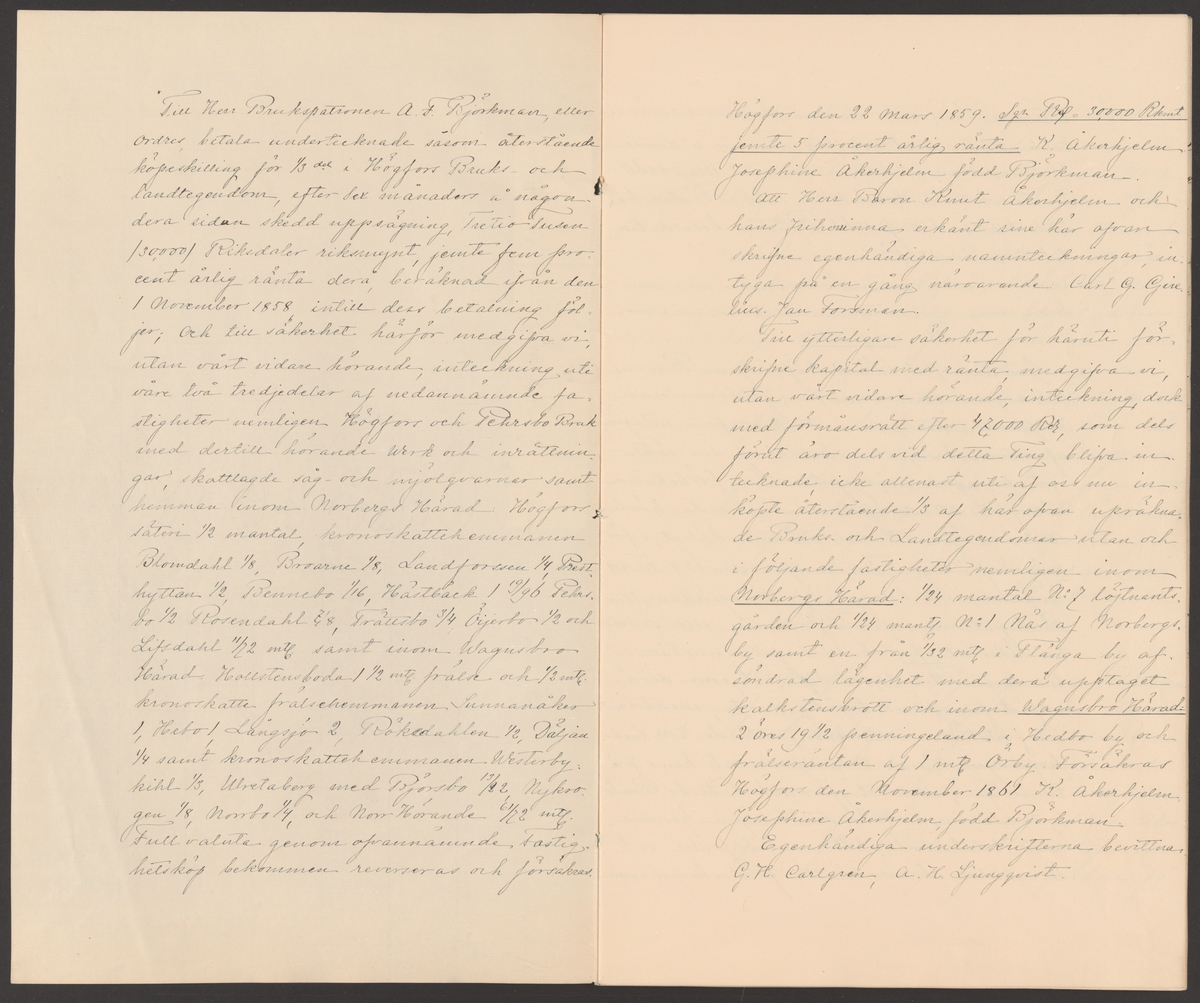 Till Herr Brukspatronen A. F. Björkman, eller
ordres, betala undertecknade såsom återstående
köpeskilling för 1/3 del i Högfors Bruks- och
landtegendom, efter sex månaders å någon-
dera sidan skedd uppsägning, Tretio Tusen
/30000/ Riksdaler riksmynt, jemte fem pro-
cent årlig ränta derå, beräknad ifrån den
1 November 1858 intill dess betalning föl-
jer; och till säkerhet härför medgifva vi,
utan vårt vidare hörande, inteckning uti
våre två tredjedelar af nedannämnde fa-
stigheter nemligen Högfors och Pehrsbo Bruk
med dertill hörande werk och inrättnin-
gar, skattlagde såg- och mjölqvarnar samt
hemman inom Norbergs Härad Högfors
säteri 1/2 mantal, kronoskattehemmanen
Blomdahl 1/8, Broarne 1/8, Landforssen 1/4, Prest-
hyttan 1/2, Bennebo 1/16, Hästback 1 19/96 Pehrs-
bo 1/2 Rosendahl 7/8, Trättsbo 3/4 Öijerbo 1/2 och
Lifsdahl 11/72 mtl samt inom Wagnsbro
Härad Hollstensboda 1 1/2 mtl frälse och 1/2 mtl
kronoskatte frälsehemmanen Sunnanåker
1, Hebo 1 Långsjö 2, Röksdahlen 1/2, Däljan
1/4 samt kronoskattehemmanen Westerby-
kihl 1/3, Ulretaberg med Björsbo 13/22, Nykro-
gen 1/8, Norrbo 1/4, och Norr Hörande 61/72 mtl.
Full valuta genom ofvannämnde Fastig-
hetsköp bekommen reverseras och försäkras.
Högfors den 22 Mars 1859. Sgr Rdr = 30000 Rkmt
jemte 5 procent årlig ränta K. Åkerhjelm
Josephine Åkerhjelm född Björkman.
Att Herr Baron Knut Åkerhjelm och
hans Friherrinna erkänt sine här ofvan
skrifne egenhändiga namnteckningar, in-
tyga på en gång närvarande Carl G. Gise-
lius. Jan Forsman.
Till ytterligare säkerhet för häruti för-
skrifne kapital med ränta medgifva vi,
utan vårt vidare hörande, inteckning, dock
med förmånsrätt efter 47,000 Rdr, som dels
förut äro dels vid detta Ting blifva in-
tecknade, icke allenast uti af oss nu in-
köpte återstående 1/3 af här ofvan upräkna-
de Bruks- och Landtegendomar utan och
i följande fastigheter nemligen inom
Norbergs Härad: 1/24 mantal No 7 löjtnants-
gården och 1/24 mantl No 1 Näs af Norbergs-
by samt en från 1/32 mtl i Flänga by af-
söndrad lägenhet med derå upptaget
kalkstensbrott och inom Wagnsbro Härad:
2 öres 19 1/2 penningeland i Hedbo by och
frälseräntan af 1 mtl Örby. Försäkras
Högfors den November 1861 K. Åkerhjelm
Josephine Åkerhjelm, född Björkman.
Egenhändiga underskrifterna bevittna:
G. H. Carlgren, A. H. Ljungqvist.